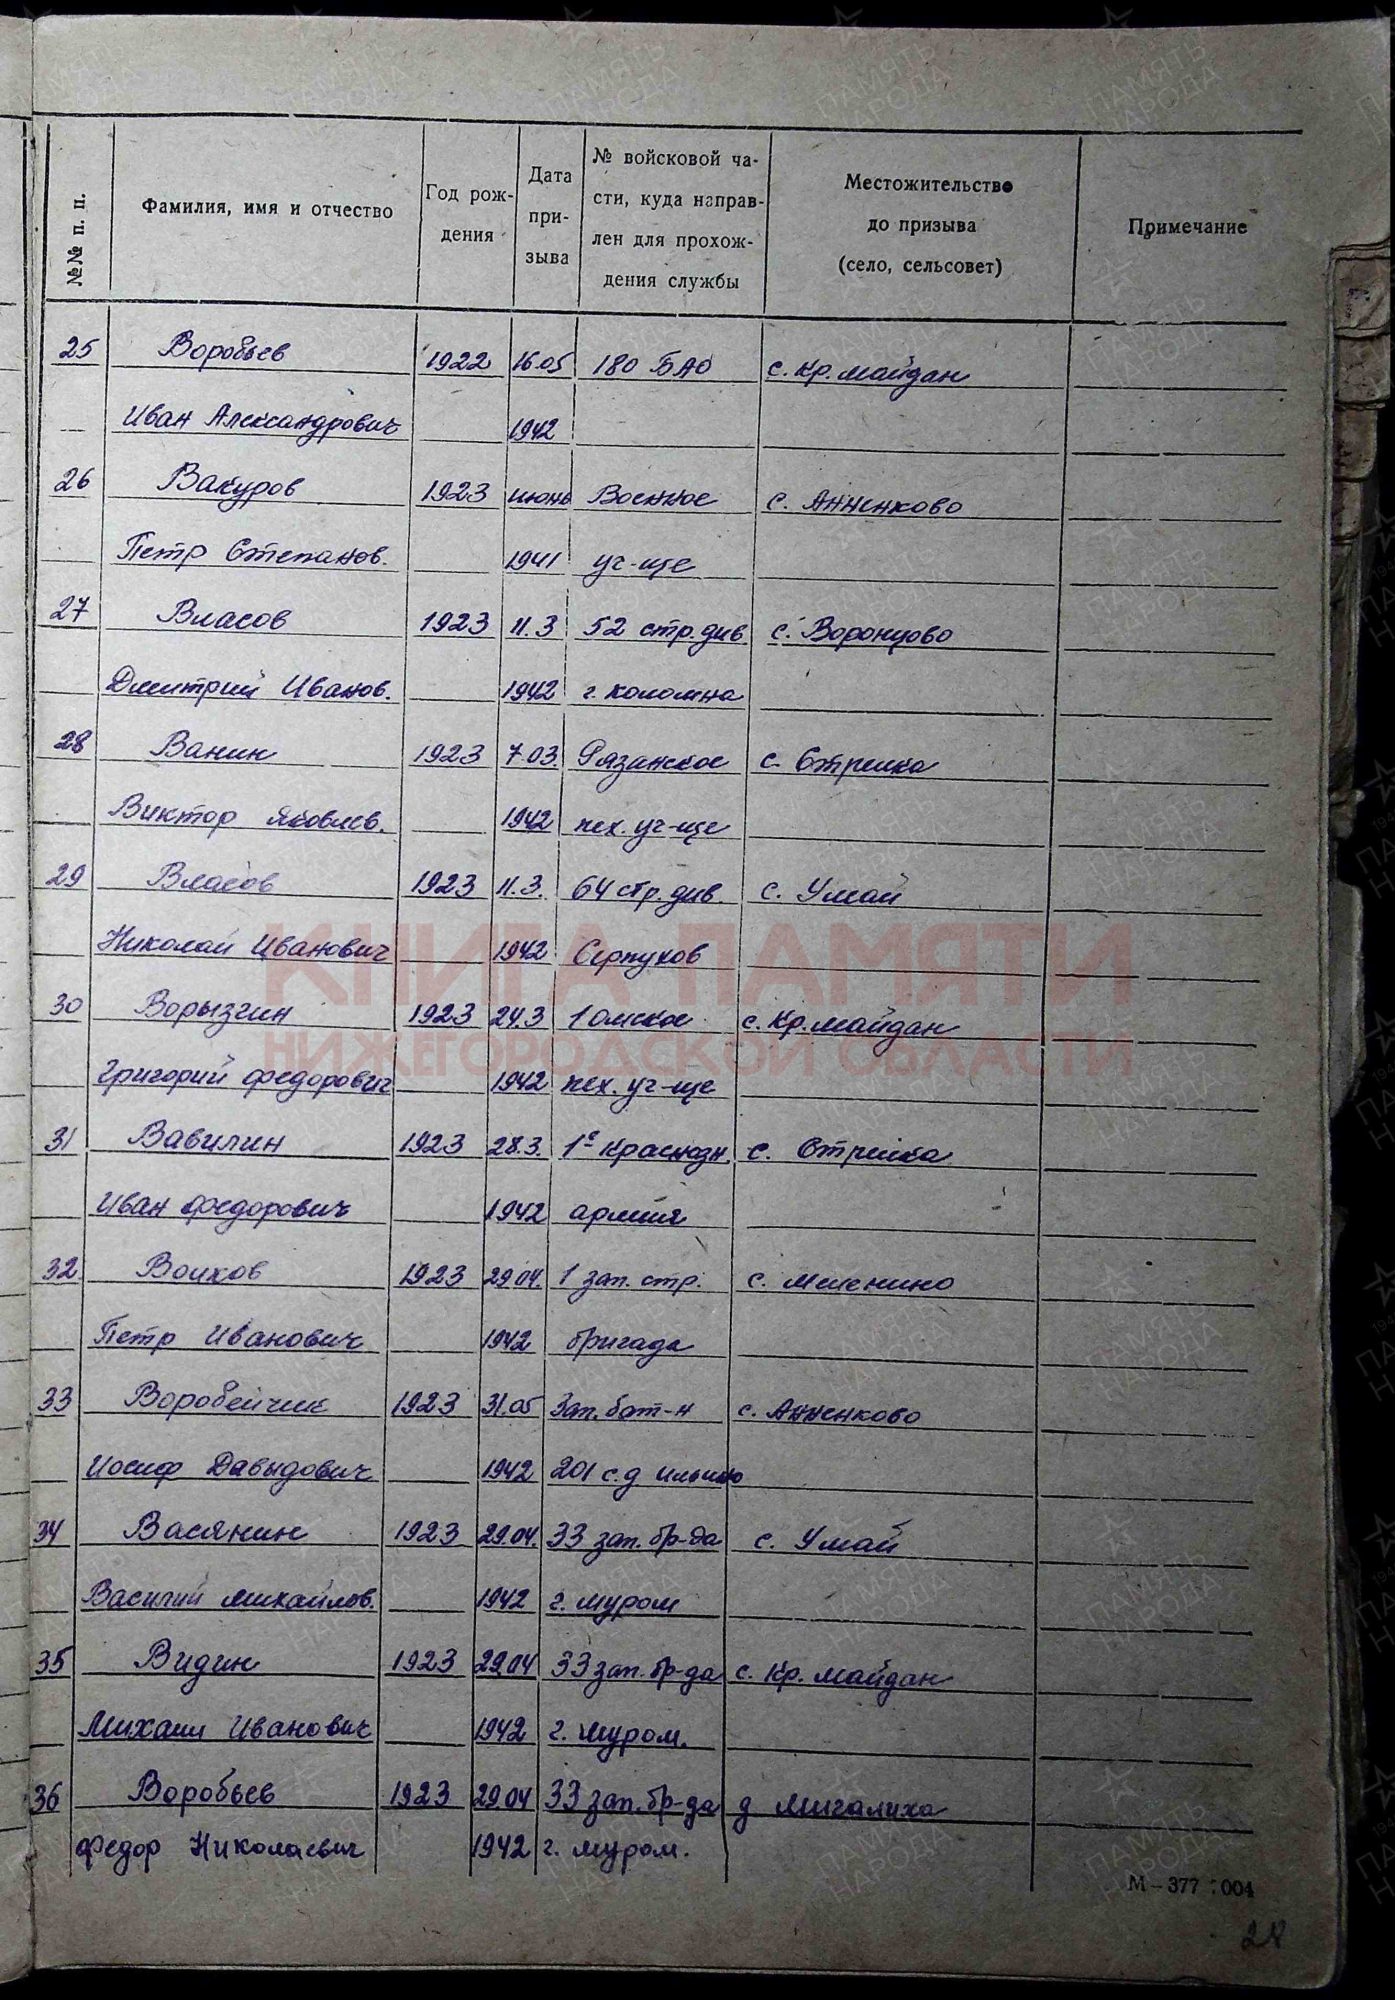 №№ п. п. Фамилия, имя и отчество Год рож- Дата № войсковой ча- Местожительство Примечание
дения при- сти, куда направ- до призыва
зыва лен для прохож- (село, сельсовет)
дения службы
25 Воробьев 1922 16.05 180 БАО с. Кр. майдан
Иван Александрович 1942
26 Вакуров 1923 июнь Военное с. Анненково
Петр Степанов. 1941 уч-ще
27 Власов 1923 11.3 52 стр. див. с. Воронцово
Дмитрий Иванов. 1942 г. коломна
28 Ванин 1923 7.03. Рязанское с. Стрелка
Виктор Яковлев. 1942 пех. уч-ще
29 Власов 1923 11.3. 64 стр. див. с. Умай
Николай Иванович 1942 Серпухов
КНИГА ПАМЯТИ
30 Ворызгин 1923 24.3 1 омское с. Кр. майдан
НИЖЕГОРОДСКОЙ ОБЛАСТИ
Григорий федорович 1942 пех. уч-ще
31 Вавилин 1923 28.3. 1е Краснозн. с. Стрелка
Иван федорович 1942 армия
32 Волков 1923 29.04. 1 зап. стр. с. Меленино
Петр Иванович 1942 бригада
33 Воробейчик 1923 31.05 Зап. бат-н с. Анненково
Иосиф Давыдович 1942 201 с.д ильино
34 Васянин 1923 29.04. 33 зап. бр-да с. Умай
Василий михайлов. 1942 г. муром
35 Видин 1923 29.04 33 зап. бр-да с. Кр. майдан
Михаил Иванович 1942 г. муром.
36 Воробьев 1923 29.04 33 зап. бр-да д мигалиха
Федор Николаевич 1942 г. муром.
М-377 : 004
28
ПАМЯТЬ
НАРОДА